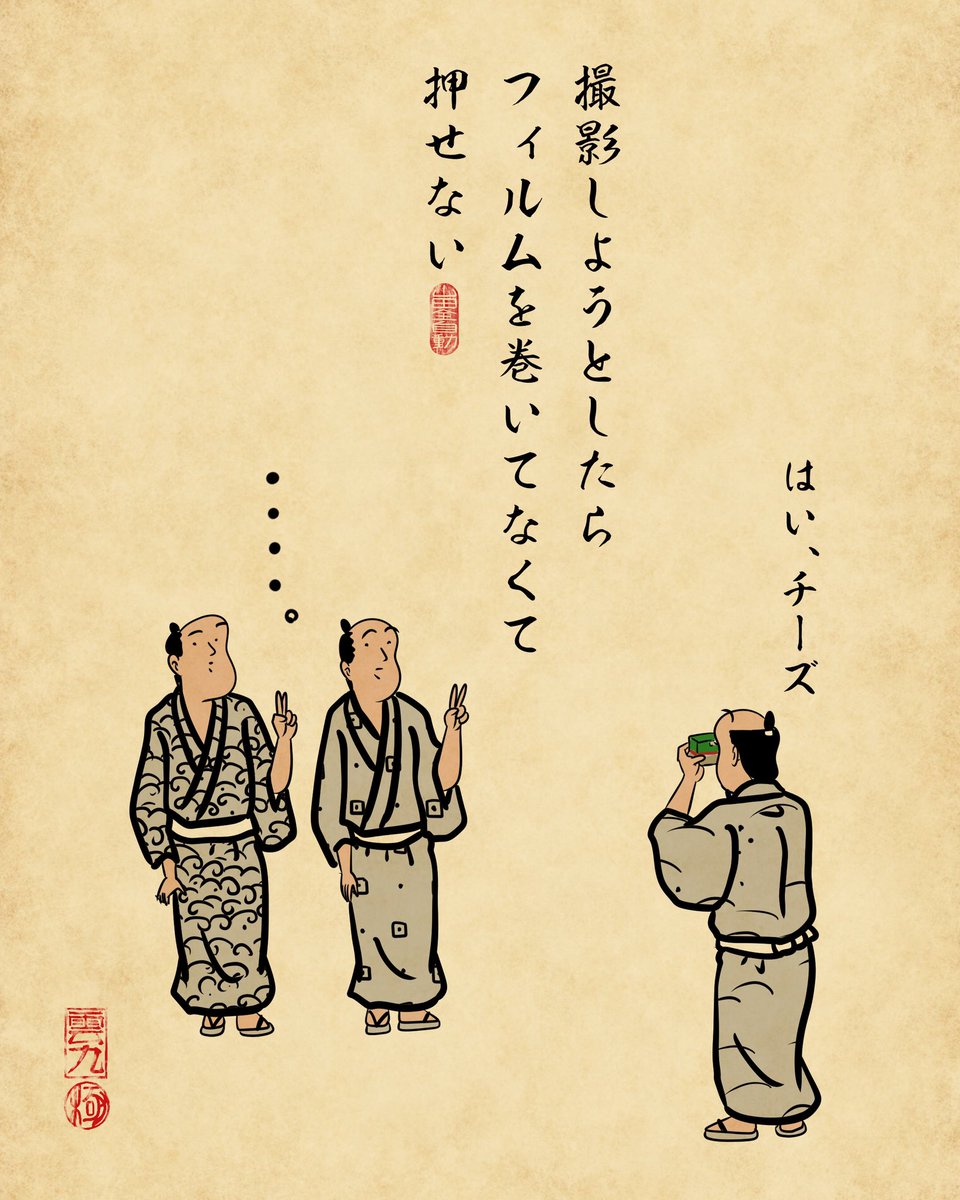 撮影しようとしたら
フィルムを巻いてなくて
押せない
はい、チーズ
・・・・。
雲丸
極